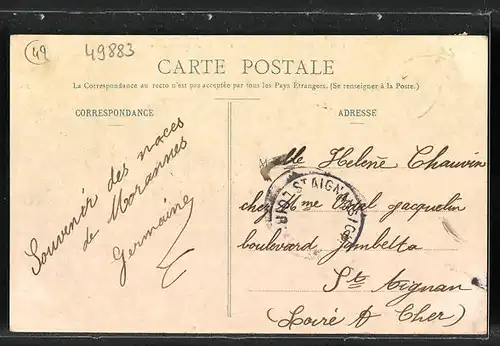 49
49883
CARTE POSTALE
La Correspondance au recto n'est pas acceptée par tous les Pays Étrangers. (Se renseigner à la Poste.)
CORRESPONDANCE
ADRESSE
Souvenir des noces
de Morannes
Germaine
Mlle Helene Chauvin
chez Mme Jacquelin
boulevard Gambetta
St Aignan
(Loire & Cher)
ST AIGN